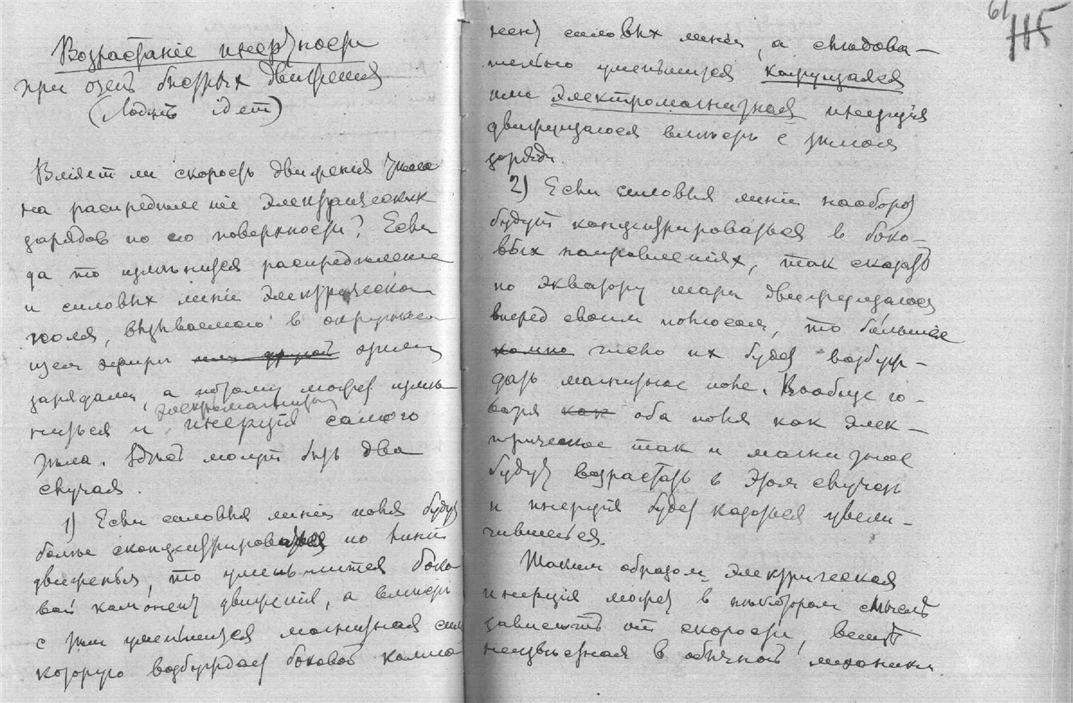 Возрастаніе инертности
при очень быстрых движениях
(Лоджъ идет)
Вліяет ли скорость движения тела
на распределеніе электрических
зарядов по его поверхности? Если
да то изменится распределение
и силовых линій электрическаго
поля, вызываемаго в окружаю-
щем эфире этими
зарядами, а потому может изме-
ниться и электромагнитн инерція самого
тела. Здесь могут быть два
случая.
1) Если силовыя линіи поля будут
более сконцентрироваться по линіи
движенья, то уменьшится боко
вой компонент движенія, а вместе
с тем уменьшится магнитная сила
которую возбуждает боковой компо
нент силовых линій, а следова-
тельно уменьшится кажущаяся
или электромагнитная инерція
движущагося вместе с телом
заряда.
2) Если силовыя линіи наоборот
будут концентрироваться в боко-
вых направлениях, так сказать
по экватору шара движущагося
вперед своим полюсом, то большее
число их будет возбуж-
дать магнитное поле. Вообще го-
воря как оба поля как элек-
трическое так и магнитное
будут возрастать в этом случае
и инерція будет казаться увели-
чившейся.
Таким образом электрическая
инерція может в некотором смысле
зависеть от скорости,
неизвестная в обычной механике